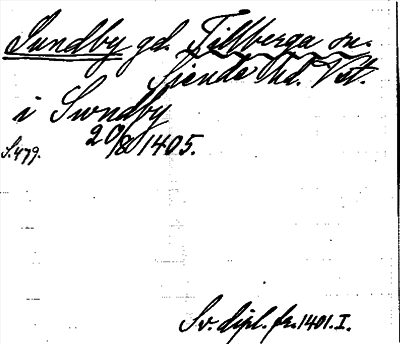 Sundby gd. Tillberga sn.
Siende hd. Vst.
i Swndby
20/8 1405.
S. 479.
Sv. dipl. fr. 1401. I.